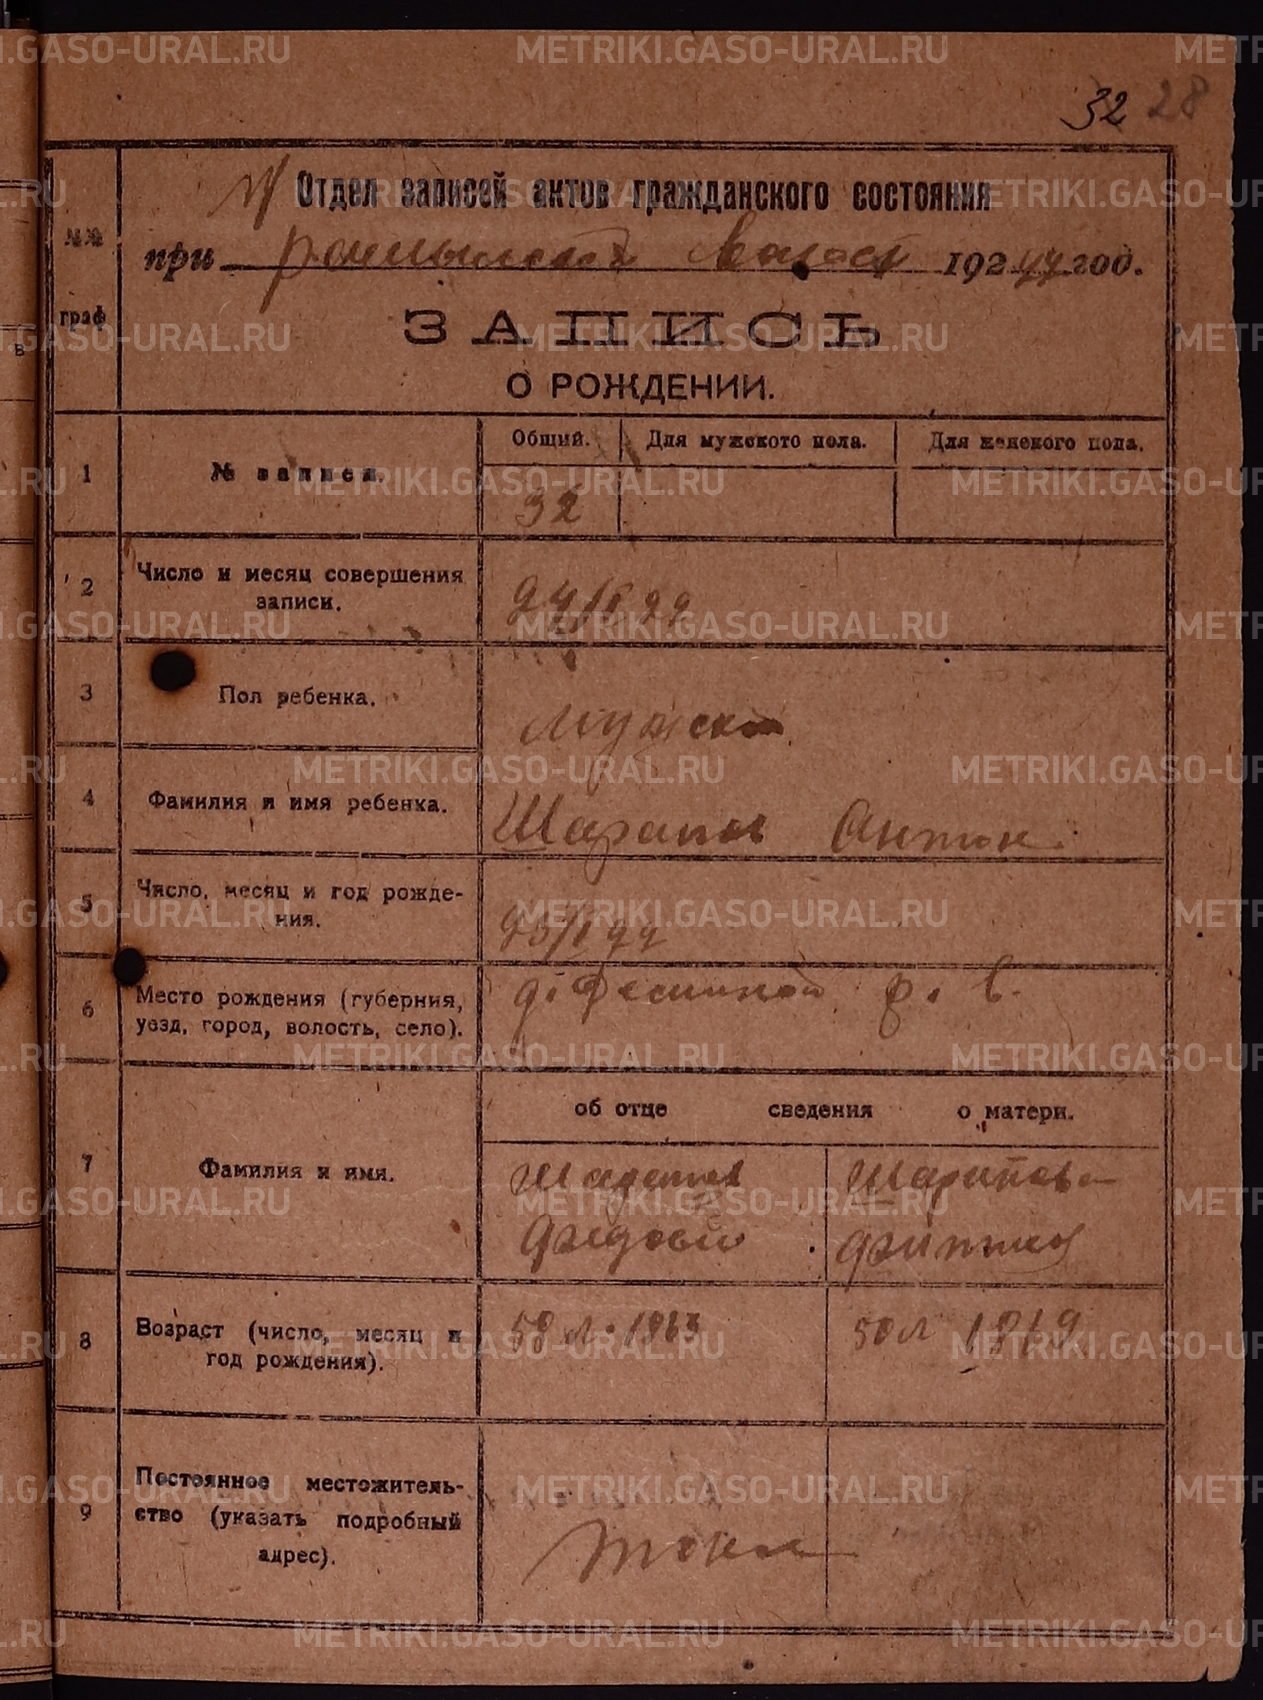 32 28
Отдел записей актов гражданского состояния
№№
при 192 год.
граф
ЗАПИСЬ
О РОЖДЕНИИ.
Общий. Для мужского пола. Для женского пола.
1 № записи.
32
2 Число и месяц совершения
записи.
3 Пол ребенка.
Мужско
4 Фамилия и имя ребенка.
Шарапов Антон
5 Число, месяц и год рожде-
ния.
6 Место рождения (губерния,
уезд, город, волость, село).
об отце сведения о матери.
7 Фамилия и имя.
8 Возраст (число, месяц и
год рождения).
58 л. 1863 50 л 1869
9 Постоянное местожитель-
ство (указать подробный
адрес).
METRIKI.GASO-URAL.RU